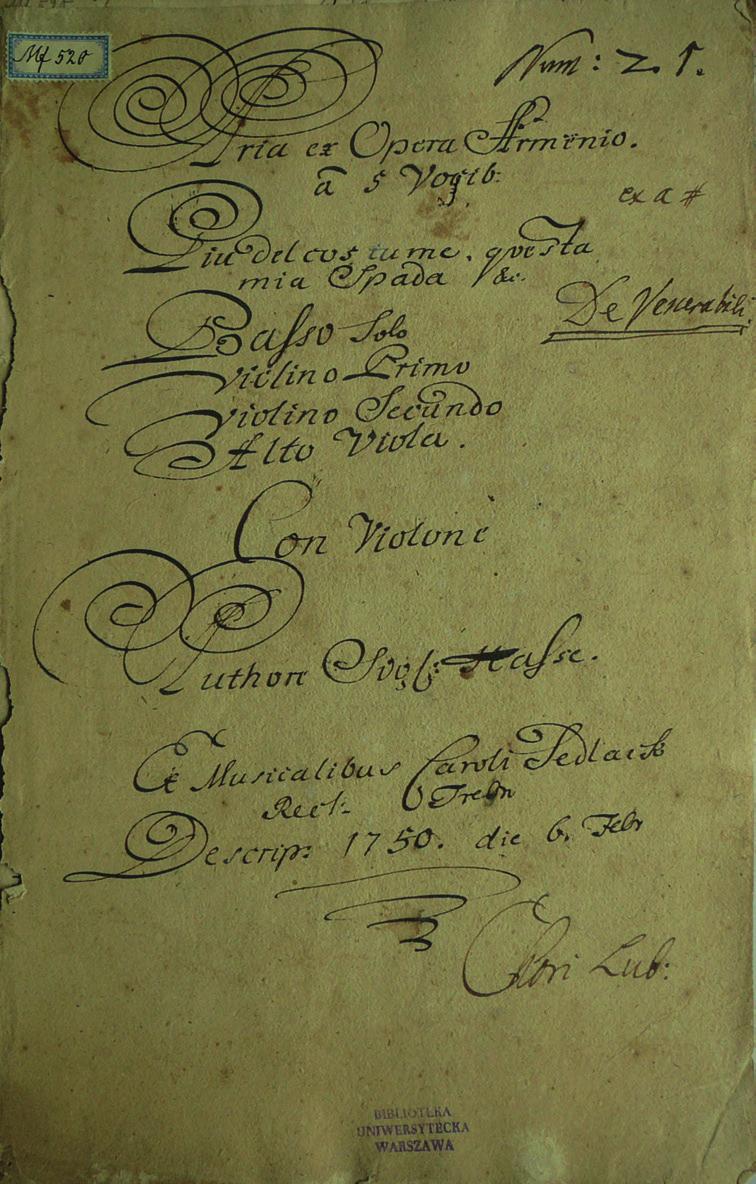 Mf 520
Num: 21.
Aria ex Opera Armenio.
a 5 Vocib:
ex a #
Piu del costume, questa
mia Spada &c.
De Venerabili
Basso Solo
Violino Primo
Violino Secundo
Alto Viola.
Con Violone
Authore Hasse.
Ex Musicalibus Caroli Sedlack
Rect:
Descrip: 1750. die 6. Febr
Chori Lub:
BIBLIOTEKA
UNIWERSYTECKA
WARSZAWA